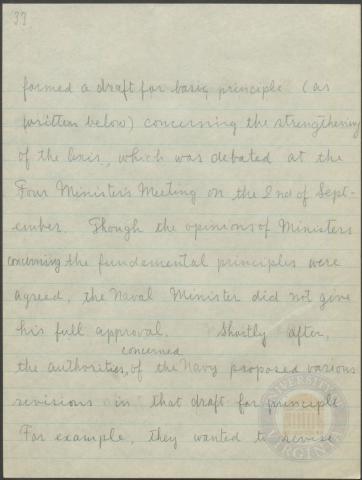 33
formed a draft for basic principle (as
written below) concerning the strengthening
of the Axis, which was debated at the
Four Minister's Meeting on the 2nd of Sept-
ember. Though the opinions of Ministers
concerning the fundamental principles were
agreed, the Naval Minister did not give
his full approval. Shortly after,
concerned
the authorities, of the Navy proposed various
revisions in that draft for principle
For example, they wanted to revise
UNIVERSITY
VIRGINIA